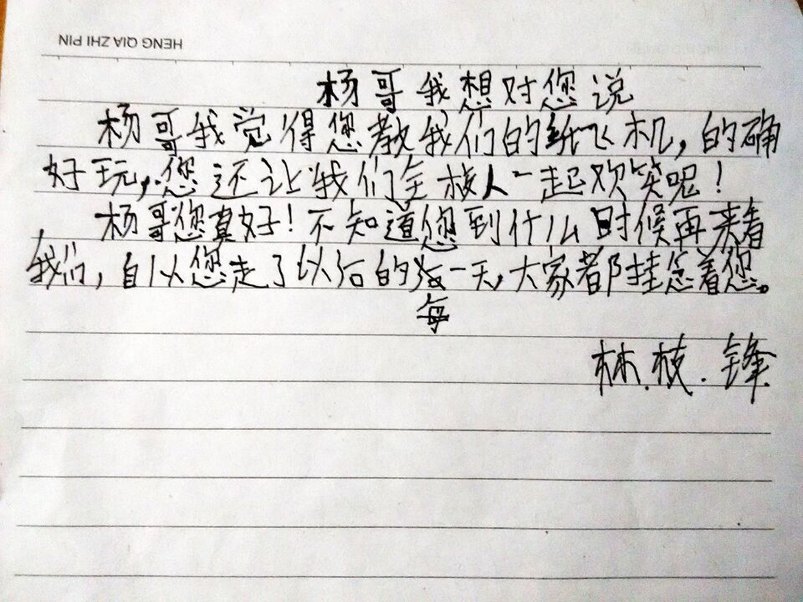 HENG QIA ZHI PIN
杨哥我想对您说
杨哥我觉得您教我们的纸飞机,的确
好玩,您还让我们全校人一起欢笑呢!
杨哥您真好!不知道您到什么时候再来看
我们,自以您走了以后的每一天,大家都挂念着您。
每
林.枝.锋